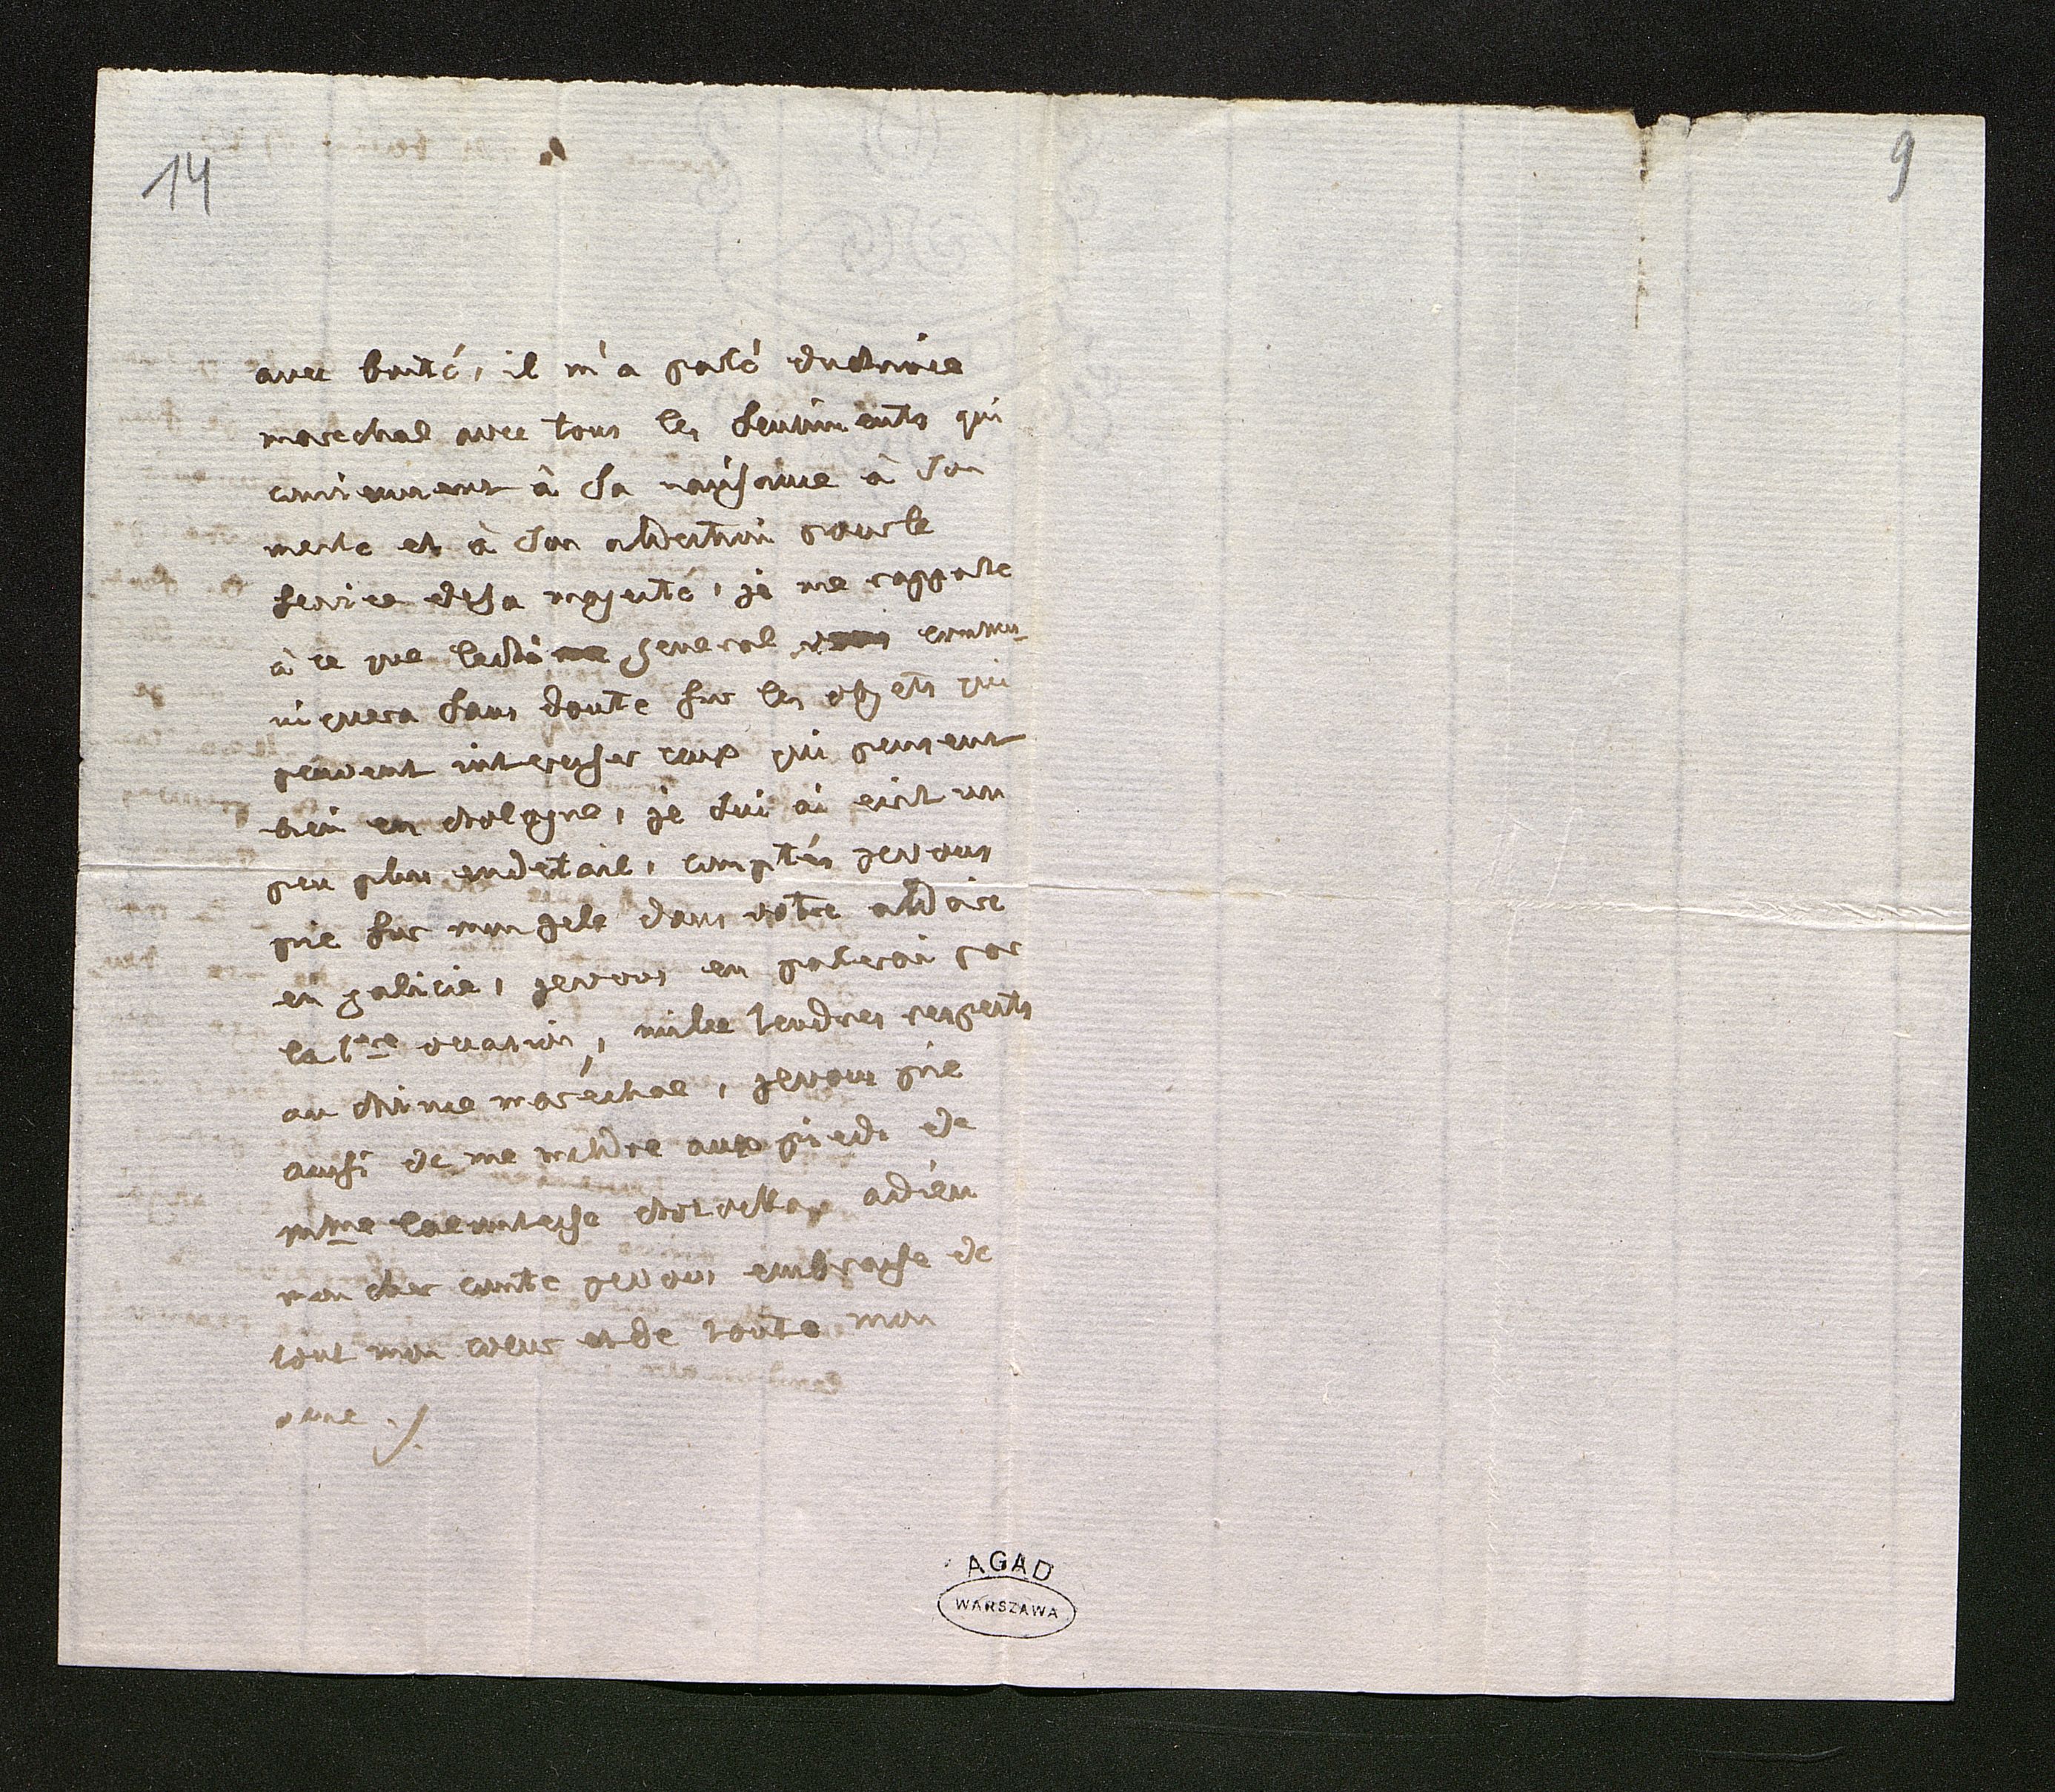 14
9
avec bonté, il m'a parlé du Prince
marechal avec tous les sentiments qui
conviennent à sa naissance à son
merite et à son attection pour le
service de sa majesté, je me rapporte
à ce que le general commu-
niquera sans doute sur les objets qui
peuvent interesser ceux qui pensent
bien en Pologne, je lui ai ecrit un
peu plus en detail, comptés je vous
prie sur mon zele dans votre affaire
en galicie, je vous en parlerai par
la 1ere occasion, mille tendres respects
au Prince maréchal, je vous prie
aussi de me mettre aux pieds de
mme la comtesse adieu
mon cher comte je vous embrasse de
tout mon coeur et de toute mon
ame ./.
AGAD
WARSZAWA